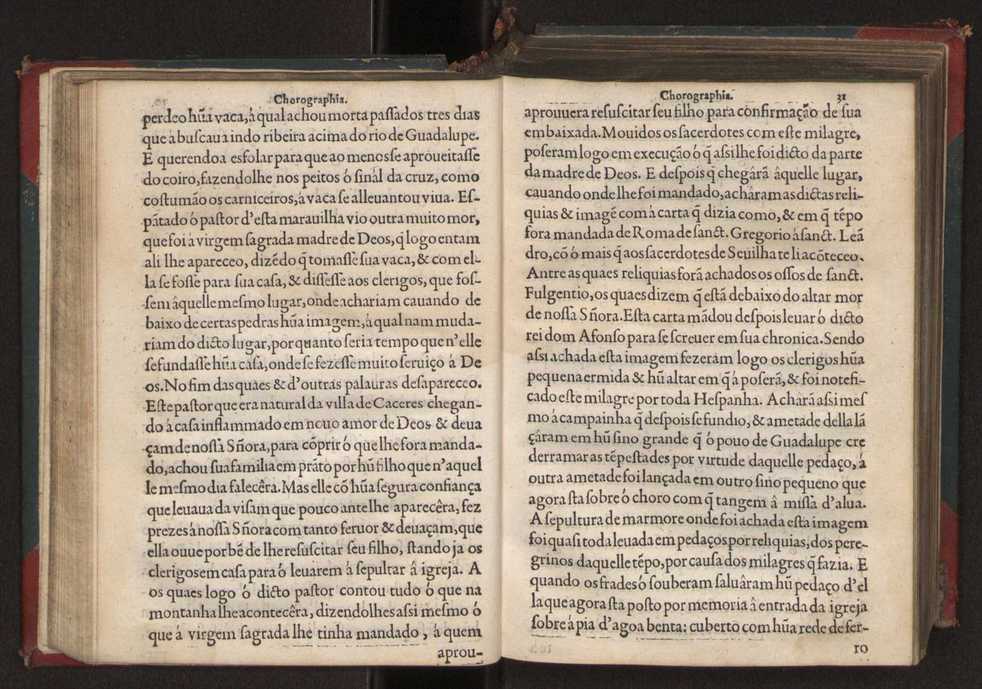 Chorographia.
perdeo hũa vaca, à qual achou morta passados tres dias
que a buscaua indo ribeira acima do rio de Guadalupe.
E querendo a esfolar para que ao menos se aproueitasse
do coiro, fazendolhe nos peitos ó sinál da cruz, como
costumão os carniceiros, à vaca se alleuantou viua. Es-
pãtado ó pastor d'esta marauilha vio outra muito mor,
que foi à virgem sagrada madre de Deos, q̃ logo entam
ali lhe apareceo, dizẽdo q̃ tomasse sua vaca, & com el-
la se fosse para sua casa, & dissesse aos clerigos, que fos-
sem âquelle mesmo lugar, onde achariam cauando de
baixo de certas pedras hũa imagem, à qual nam muda-
riam do dicto lugar, por quanto seria tempo que n'elle
se fundasse hũa casa, onde se fezesse muito seruiço á De
os. No fim das quaes & d'outras palauras desapareceo.
Este pastor que era natural da villa de Caceres chegan-
do à casa inflammado em nouo amor de Deos & deua
çam de nossa Sñora, para cõprir ó que lhe fora manda-
do, achou sua familia em prãto por hũ filho que n'aquel
le mesmo dia falecêra. Mas elle cõ hũa segura confiança
que leuaua da visam que pouco ante lhe aparecêra, fez
prezes á nossa Sñora com tanto feruor & deuaçam, que
ella ouue por bẽ de lhe resuscitar seu filho, stando ja os
clerigos em casa para ó leuarem â sepultar â igreja. A
os quaes logo ó dicto pastor contou tudo ó que na
montanha lhe acontecêra, dizendolhes assi mesmo ó
que á virgem sagrada lhe tinha mandado, á quem
aprou-
Chorographia. 31
aprouuera resuscitar seu filho para confirmação de sua
embaixada. Mouidos os sacerdotes com este milagre,
poseram logo em execução ó q̃ assi lhe foi dicto da parte
da madre de Deos. E despois q̃ chegárã âquelle lugar,
cauando onde lhe foi mandado, achâram as dictas reli-
quias & imagẽ com à carta q̃ dizia como, & em q̃ tẽpo
fora mandada de Roma de sanct. Gregorio á sanct. Leã
dro, cõ ó mais q̃ aos sacerdotes de Seuilha te li acõteceo.
Antre as quaes reliquias forã achados os ossos de sanct.
Fulgentio, os quaes dizem q̃ estã debaixo do altar mor
de nossa Sñora. Esta carta mãdou despois leuar ó dicto
rei dom Afonso para se screuer em sua chronica. Sendo
assi achada esta imagem fezeram logo os clerigos hũa
pequena ermida & hũ altar em q̃ á poserã, & foi notefi-
cado este milagre por toda Hespanha. Acharã assi mes
mo á campainha q̃ despois se fundio, & ametade della lã
çâram em hũ sino grande q̃ ó pouo de Guadalupe cre
derramar as tẽpestades por virtude daquelle pedaço, á
outra ametade foi lançada em outro sino pequeno que
agora sta sobre ó choro com q̃ tangem â missa d'alua.
A sepultura de marmore onde foi achada esta imagem
foi quasi toda leuada em pedaços por reliquias, dos pere-
grinos daquelle tẽpo, por causa dos milagres q̃ fazia. E
quando os frades ó souberam saluâram hũ pedaço d'el
la que agora sta posto por memoria â entrada da igreja
sobre â pia d'agoa benta: cuberto com hũa rede de fer-
ro